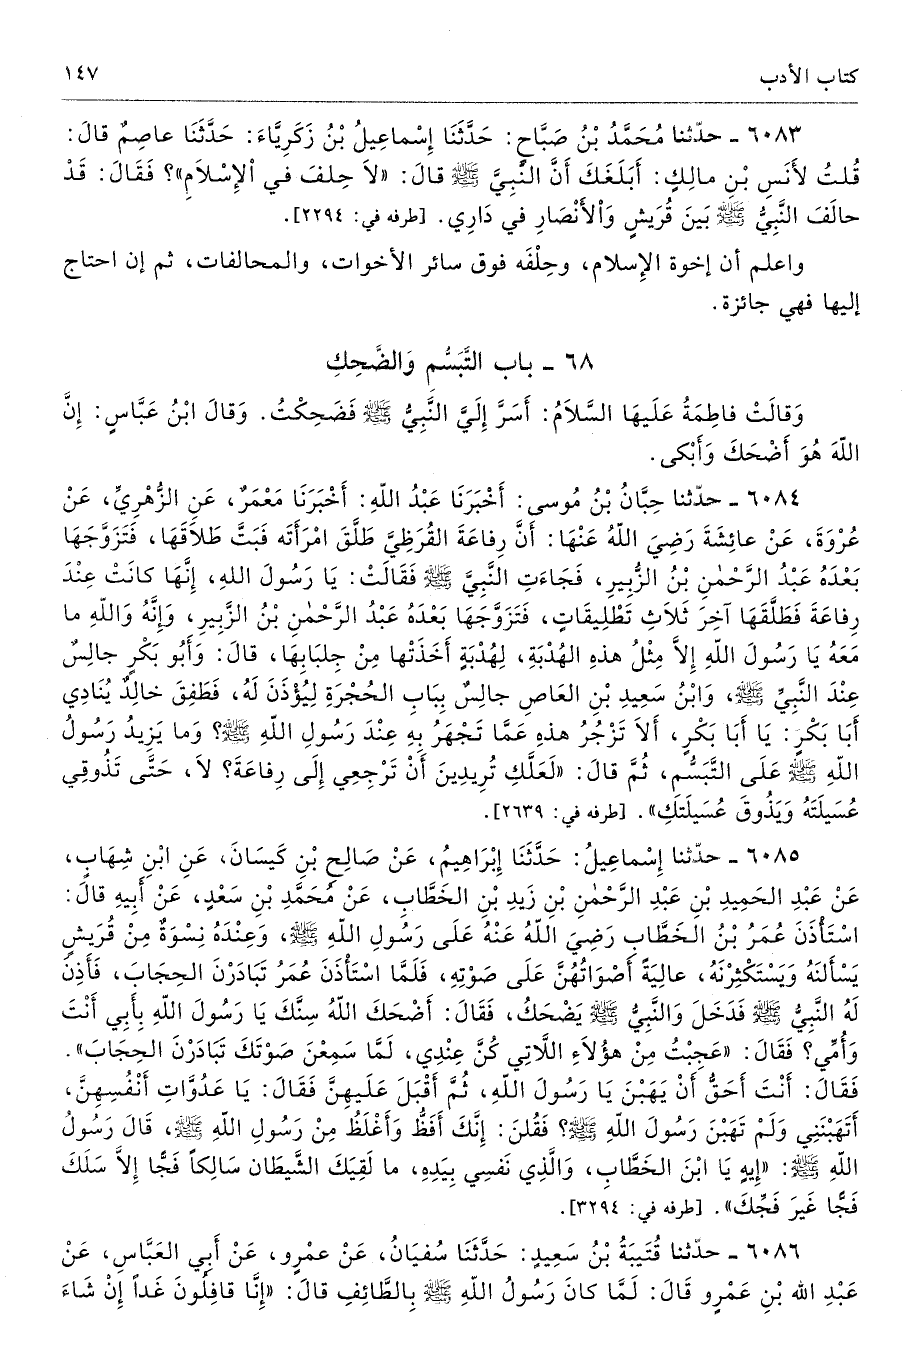 كتاب الأدب ١٤٧
٦٠٨٣ ـ حدّثنا مُحَمَّدُ بْنُ صَبَّاحٍ: حَدَّثَنَا إِسْماعِيلُ بْنُ زَكَرِيَّاءَ: حَدَّثَنَا عاصِمٌ قالَ:
قُلتُ لأَنَسِ بْنِ مالِكٍ: أَبَلَغَكَ أَنَّ النَّبِيَّ ﷺ قالَ: «لاَ حِلفَ في الإِسْلاَمِ»؟ فَقَالَ: قَدْ
حالَفَ النَّبِيُّ ﷺ بَينَ قُرَيشٍ وَالأَنْصَارِ في دَارِي. [طرفه في: ٢٢٩٤].
واعلم أن إخوة الإِسلام، وحِلْفَه فوق سائر الأخوات، والمحالفات، ثم إن احتاج
إليها فهي جائزة.
٦٨ ـ باب التَّبَسُّمِ وَالضَّحِكِ
وَقالَتْ فاطِمَةُ عَلَيهَا السَّلاَمُ: أَسَرَّ إِلَيَّ النَّبِيُّ ﷺ فَضَحِكْتُ. وَقالَ ابْنُ عَبَّاسٍ: إِنَّ
اللّهَ هُوَ أَضْحَكَ وَأَبْكى.
٦٠٨٤ ـ حدّثنا حِبَّانُ بْنُ مُوسى: أَخْبَرَنَا عَبْدُ اللّهِ: أَخْبَرَنَا مَعْمَرٌ، عَنِ الزُّهْرِيِّ، عَنْ
عُرْوَةَ، عَنْ عائِشَةَ رَضِيَ اللّهُ عَنْهَا: أَنَّ رِفاعَةَ القُرَظِيَّ طَلَّقَ امْرَأَتَه فَبَتَّ طَلاَقَهَا، فَتَزَوَّجَهَا
بَعْدَهُ عَبْدُ الرَّحْمٰنِ بْنُ الزُّبِيرِ، فَجَاءَتِ النَّبِيَّ ﷺ فَقَالَتْ: يَا رَسُولَ اللهِ، إِنَّهَا كانَتْ عِنْدَ
رِفاعَةَ فَطَلَّقَهَا آخِرَ ثَلاَثِ تَطْلِيقَاتٍ، فَتَزَوَّجَهَا بَعْدَهُ عَبْدُ الرَّحْمٰنِ بْنُ الزَّبِيرِ، وَإِنَّهُ وَاللّهِ ما
مَعَهُ يَا رَسُولَ اللّهِ إِلاَّ مِثْلُ هذهِ الهُدْبَةِ، لِهُدْبَةٍ أَخَذَتْها مِنْ جِلبَابِهَا، قالَ: وَأَبُو بَكْرٍ جالِسٌ
عِنْدَ النَّبِيِّ ﷺ، وَابْنُ سَعِيدِ بْنِ العَاصِ جالِسٌ بِبَابِ الحُجْرَةِ لِيُؤْذَنَ لَهُ، فَطَفِقَ خالِدٌ يُنَادِي
أَبَا بَكْرٍ: يَا أَبَا بَكْرٍ، أَلاَ تَزْجُرُ هذهِ عَمَّا تَجْهَرُ بِهِ عِنْدَ رَسُولِ اللّهِ ﷺ؟ وَما يَزِيدُ رَسُولُ
اللّهِ ﷺ عَلَى التَّبَسُّمِ، ثُمَّ قالَ: «لَعَلَّكِ تُرِيدِينَ أَنْ تَرْجِعِي إِلَى رِفاعَةَ؟ لاَ، حَتَّى تَذُوقِي
عُسَيلَتَهُ وَيَذُوقَ عُسَيلَتَكِ». [طرفه في: ٢٦٣٩].
٦٠٨٥ ـ حدّثنا إِسْماعِيلُ: حَدَّثَنَا إِبْرَاهِيمُ، عَنْ صَالِحِ بْنِ كَيسَانَ، عَنِ ابْنِ شِهَابٍ،
عَنْ عَبْدِ الحَمِيدِ بْنِ عَبْدِ الرَّحْمٰنِ بْنِ زَيدِ بْنِ الخَطَّابِ، عَنْ مُحَمَّدِ بْنِ سَعْدٍ، عَنْ أَبِيهِ قالَ:
اسْتَأْذَنَ عُمَرُ بْنُ الخَطَّابِ رَضِيَ اللّهُ عَنْهُ عَلَى رَسُولِ اللّهِ ﷺ، وَعِنْدَهُ نِسْوَةٌ مِنْ قُرَيشٍ
يَسْأَلنَهُ وَيَسْتَكْثِرْنَهُ، عالِيَةً أَصْوَاتُهُنَّ عَلَى صَوْتِهِ، فَلَمَّا اسْتَأْذَنَ عُمَرُ تَبَادَرْنَ الحِجَابَ، فَأَذِنَ
لَهُ النَّبِيُّ ﷺ فَدَخَلَ وَالنَّبِيُّ ﷺ يَضْحَكُ، فَقَالَ: أَضْحَكَ اللّهُ سِنَّكَ يَا رَسُولَ اللّهِ بِأَبِي أَنْتَ
وَأُمِّي؟ فَقَالَ: «عَجِبْتُ مِنْ هؤُلاَءِ اللاَّتِي كُنَّ عِنْدِي، لَمَّا سَمِعْنَ صَوْتَكَ تَبَادَرْنَ الحِجَابَ».
فَقَالَ: أَنْتَ أَحَقُّ أَنْ يَهَبْنَ يَا رَسُولَ اللهِ، ثُمَّ أَقْبَلَ عَلَيهِنَّ فَقَالَ: يَا عَدُوَّاتِ أَنْفُسِهِنَّ،
أَتَهَبْنَنِي وَلَمْ تَهَبْنَ رَسُولَ اللّهِ ﷺ؟ فَقُلنَ: إِنَّكَ أَفَظُّ وَأَغْلَظُ مِنْ رَسُولِ اللّهِ ﷺ، قَالَ رَسُولُ
اللّهِ ﷺ: «إِيهٍ يَا ابْنَ الخَطَّابِ، وَالَّذِي نَفسِي بِيَدِهِ، ما لَقِيَكَ الشَّيطَانُ سَالِكاً فَجًّا إِلاَّ سَلَكَ
فَجًّا غَيرَ فَجِّكَ». [طرفه في: ٣٢٩٤].
٦٠٨٦ ـ حدّثنا قُتَيبَةُ بْنُ سَعِيدٍ: حَدَّثَنَا سُفيَانُ، عَنْ عمْرٍو، عَنْ أَبِي العَبَّاسِ، عَنْ
عَبْدِ الله بْنِ عَمْرٍو قَالَ: لَمَّا كانَ رَسُولُ اللّهِ ﷺ بِالطَّائِفِ قالَ: «إِنَّا قافِلُونَ غَداً إِنْ شَاءَ